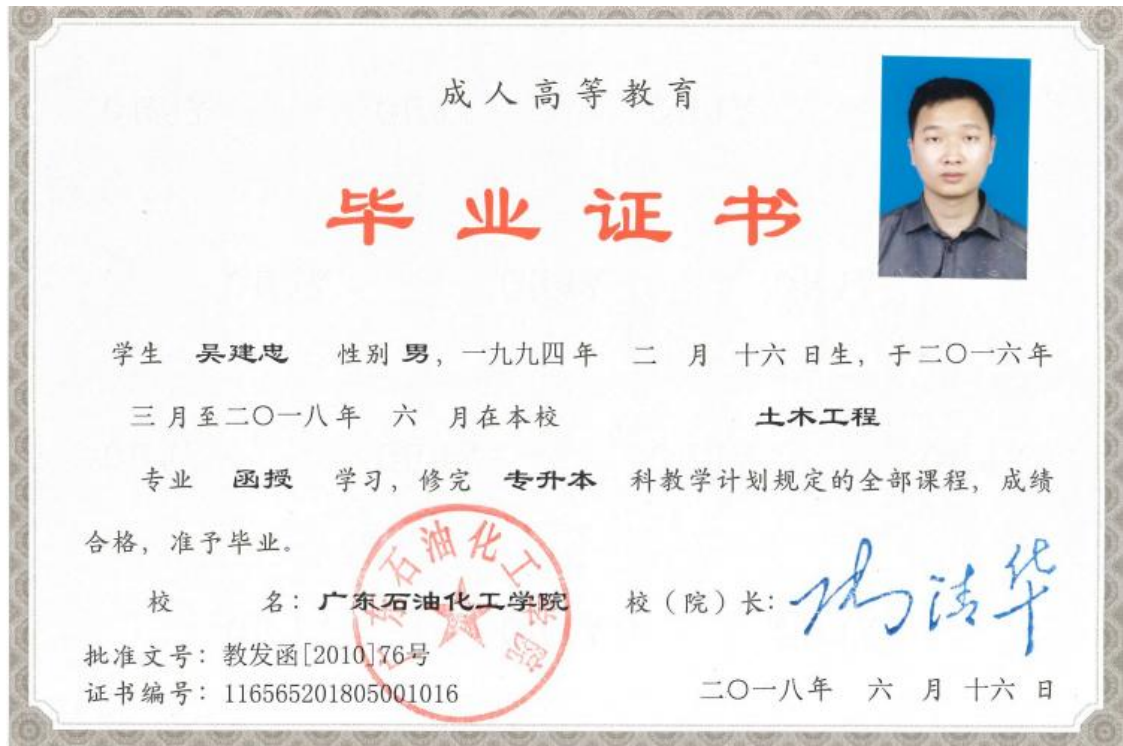 成人高等教育
毕业证书
学生 吴建忠 性别 男，一九九四年 二 月 十六 日生，于二〇一六年
三 月至二〇一八年 六 月在本校 土木工程
专业 函授 学习，修完 专升本 科教学计划规定的全部课程，成绩
合格，准予毕业。
校 名：广东石油化工学院 校（院）长：
批准文号：教发函[2010]76号
证书编号：116565201805001016 二〇一八年 六 月 十六 日
广东石油化工学院